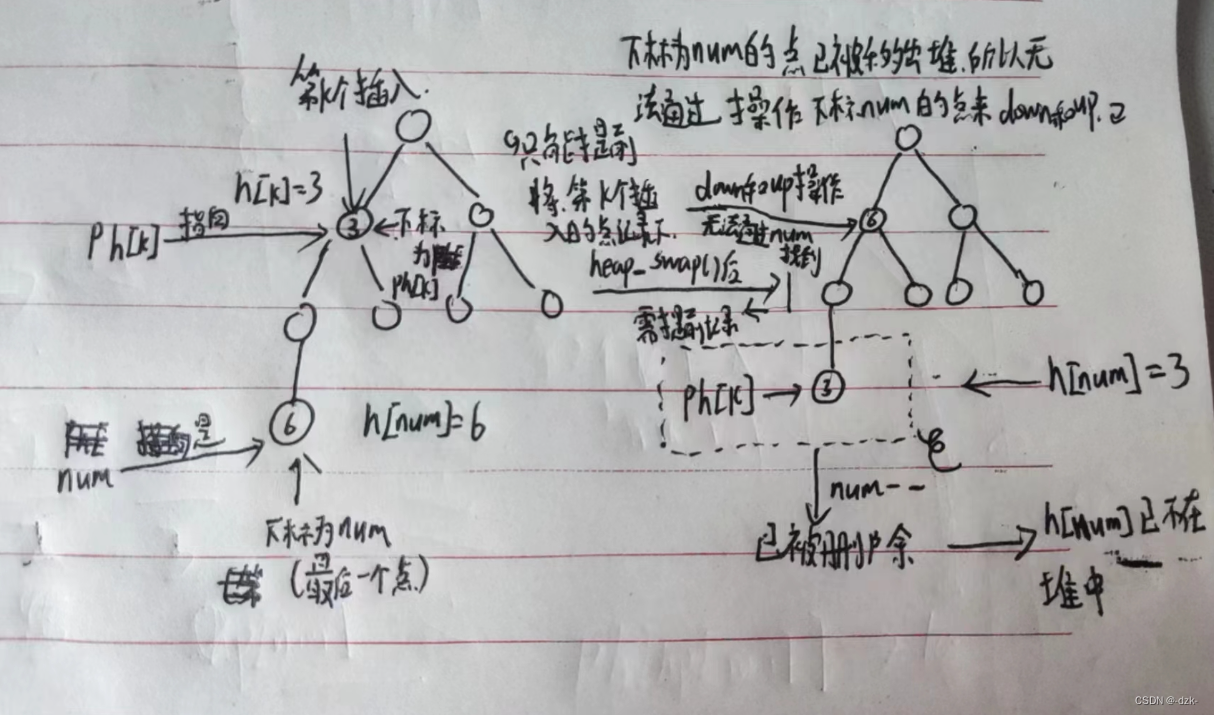 下标为num的点已被移出堆.所以无
法通过 操作 下标num的点来 down和up.
第k个插入.
只能提前
将.第k个插
入的点记录下.
down和up操作
无法通过num
找到
h[k]=3
Ph[k]
指向
3
←下标
为
ph[k]
heap_swap()后
需提前记录
6
6
h[num]=6
是
num
下标为num
(最后一个点)
ph[k]→
3
h[num]=3
num--
已被删除
h[num]已不在
堆中
CSDN @-dzk-